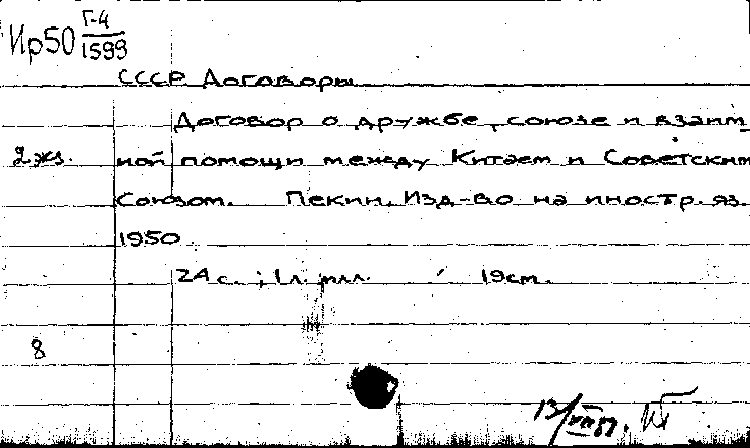 Ир50 Г-4
1599
СССР. Договоры
Договор о дружбе, союзе и взаим
2 жз. ной помощи между Китаем и Советским
Союзом. Пекин, Изд-во на иностр. яз.
1950.
24 с.; 1 л. илл. 19 см.
8
13/VII